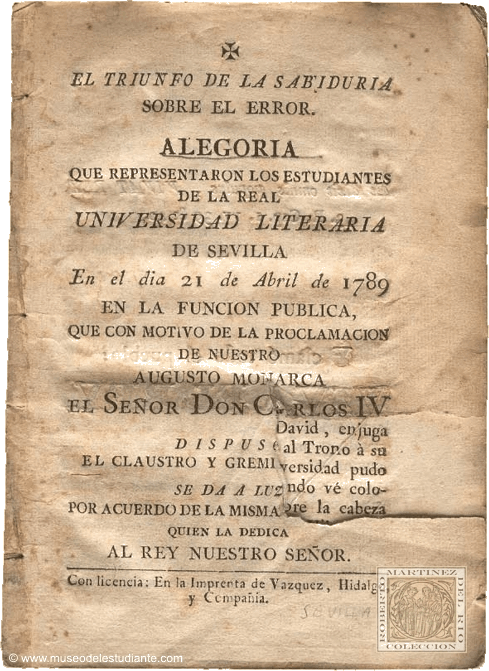 EL TRIUNFO DE LA SABIDURIA
SOBRE EL ERROR.
ALEGORIA
QUE REPRESENTARON LOS ESTUDIANTES
DE LA REAL
UNIVERSIDAD LITERARIA
DE SEVILLA
En el dia 21 de Abril de 1789
EN LA FUNCION PUBLICA,
QUE CON MOTIVO DE LA PROCLAMACION
DE NUESTRO
AUGUSTO MONARCA
EL SEÑOR DON CARLOS IV
David, enjuga
DISPUS al Trono à su
EL CLAUSTRO Y GREMI versidad pudo
SE DA A LUZ ndo vé colo-
POR ACUERDO DE LA MISMA bre la cabeza
QUIEN LA DEDICA
AL REY NUESTRO SEÑOR.
Con licencia: En la Imprenta de Vazquez, Hidalg
y Compañia.
SEVILLA
ROBERTO MARTINEZ DEL RIO COLECCION
© www.museodelestudiante.com